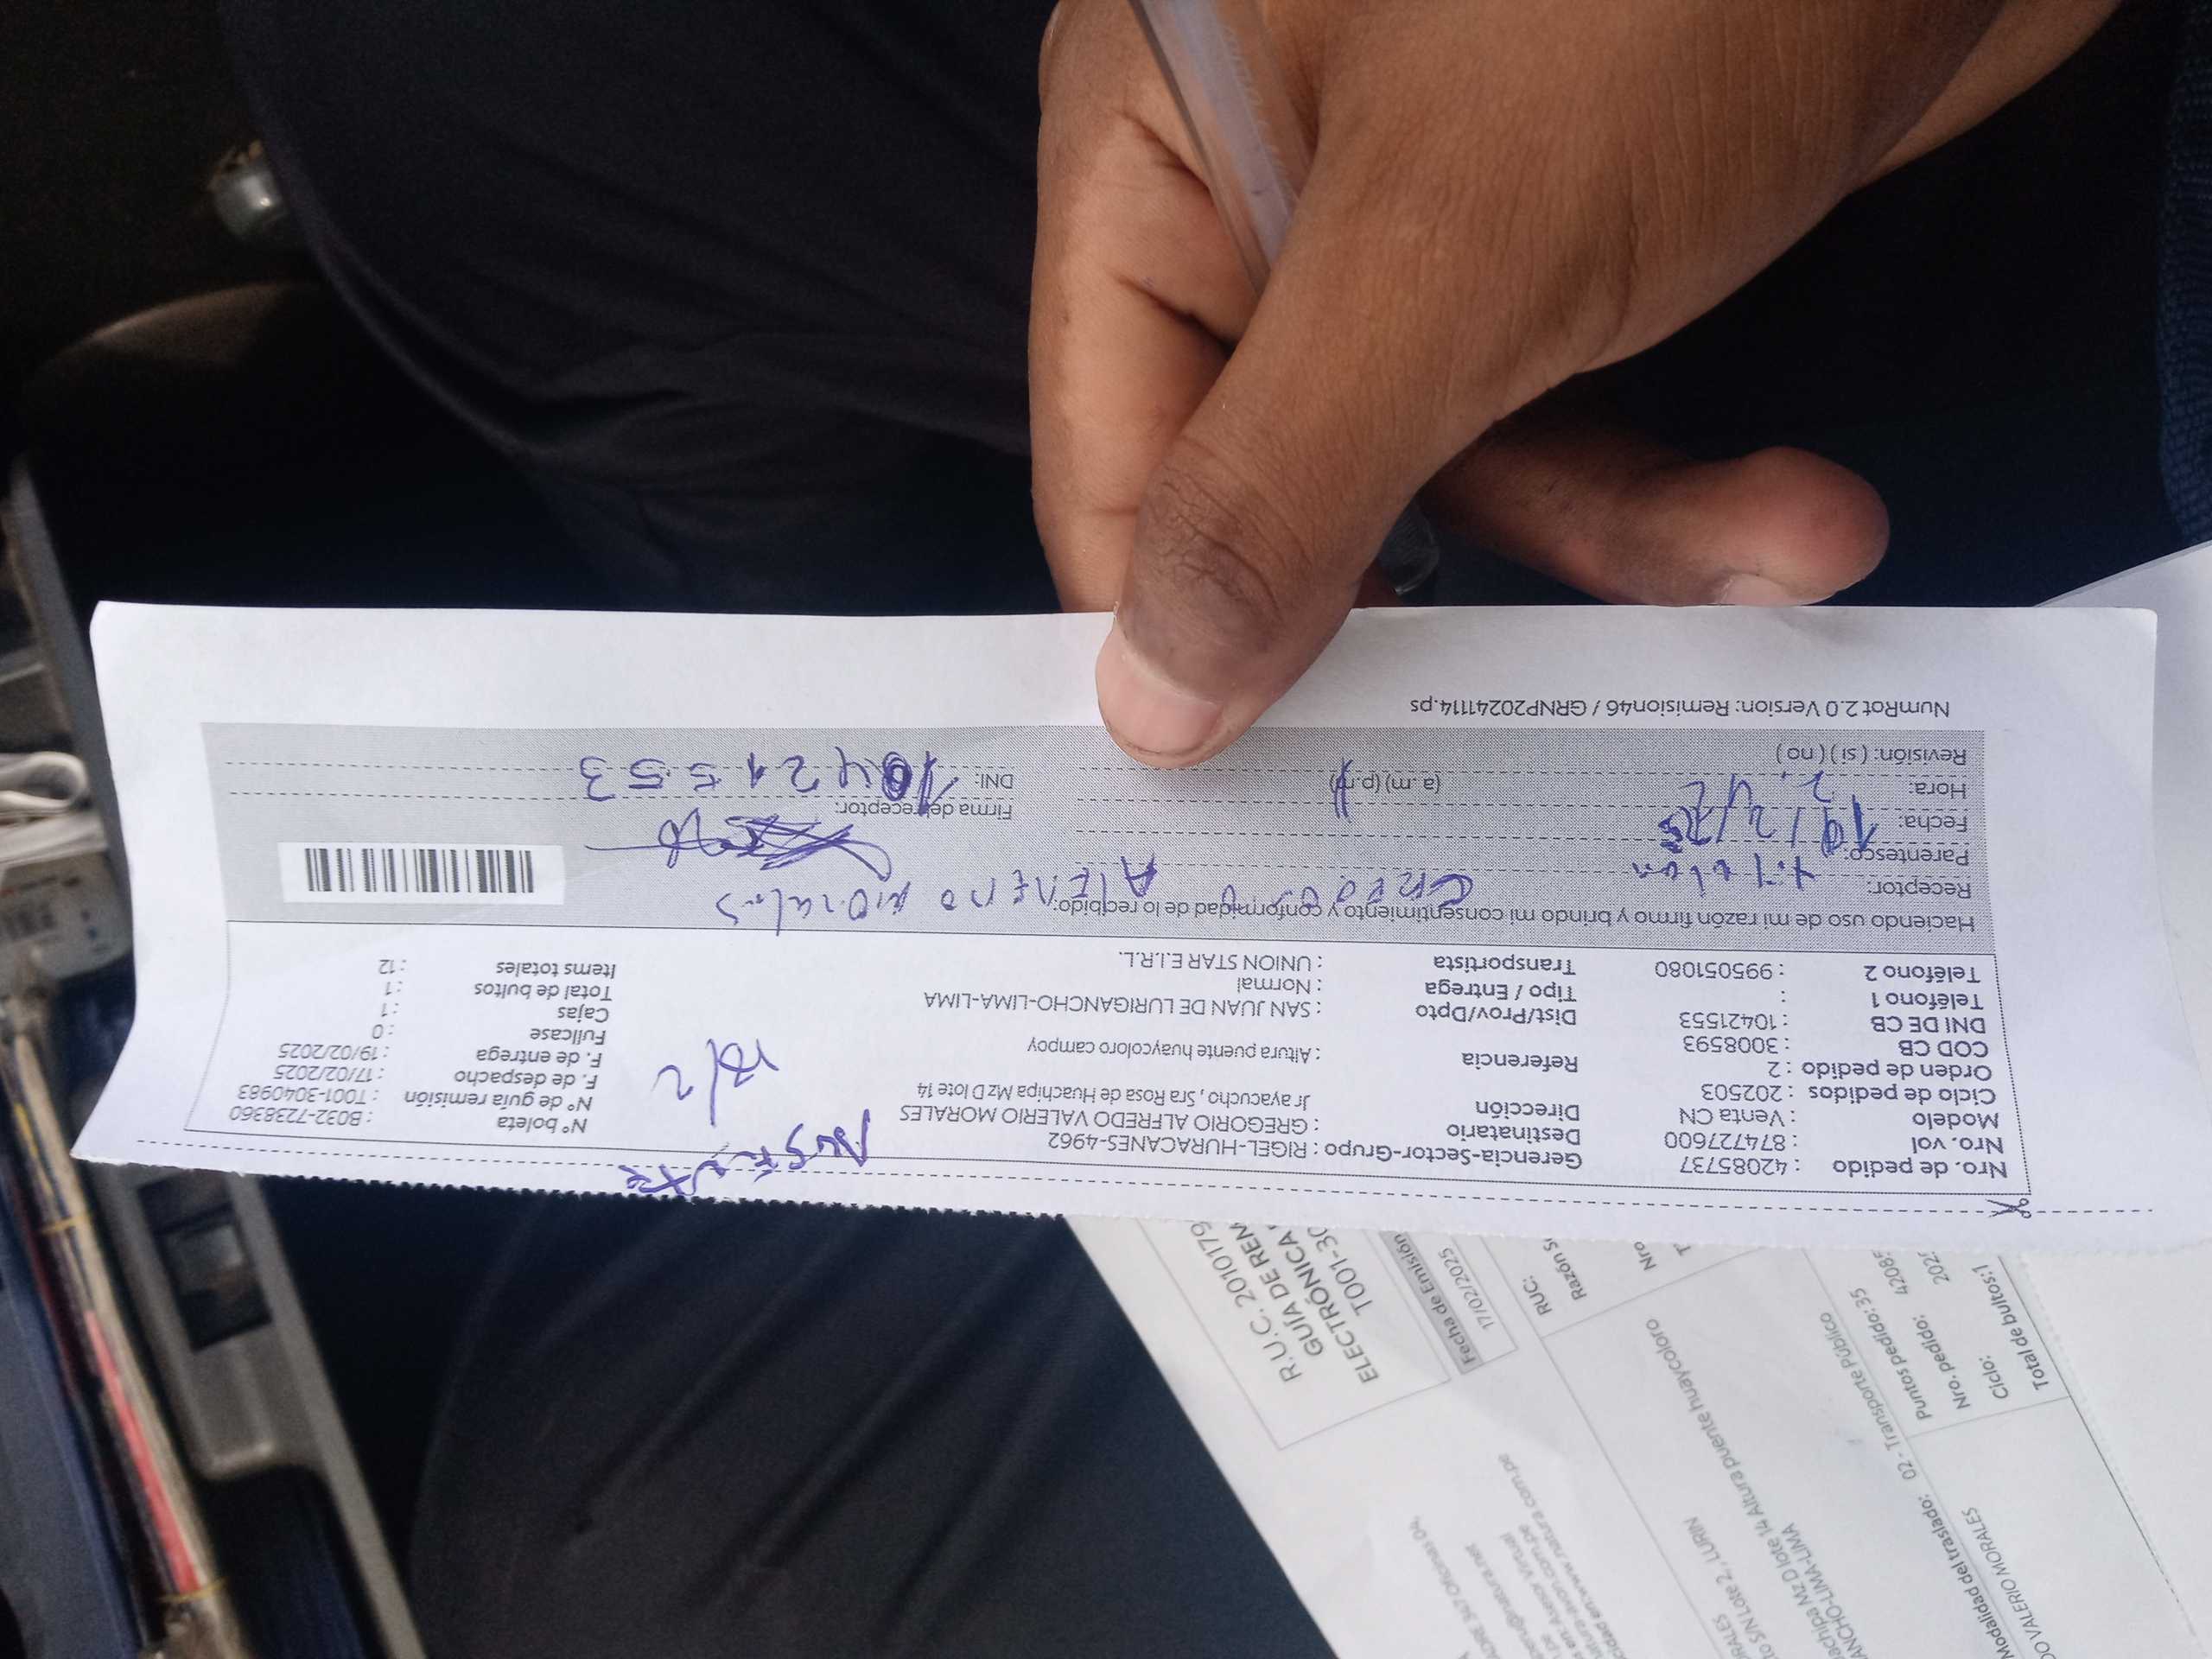 Nro. de pedido : 42085737
Nro. vol : 874727600
Modelo : Venta CN
Ciclo de pedidos : 202503
Orden de pedido : 2
COD CB : 3008593
DNI DE CB : 10421553
Teléfono 1 :
Teléfono 2 : 995051080
Gerencia-Sector-Grupo : RIGEL-HURACANES-4962
Destinatario : GREGORIO ALFREDO VALERIO MORALES
Dirección Jr ayacucho , Sra Rosa de Huachipa Mz D lote 14
Referencia : Altura puente huaycoloro campoy
Dist/Prov/Dpto : SAN JUAN DE LURIGANCHO-LIMA-LIMA
Tipo / Entrega : Normal
Transportista : UNION STAR E.I.R.L.
AUSENTE
18/2
N° boleta : B032-7238360
N° de guía remisión : T001-3040983
F. de despacho : 17/02/2025
F. de entrega : 19/02/2025
Fullcase : 0
Cajas : 1
Total de bultos : 1
Items totales : 12
Haciendo uso de mi razón firmo y brindo mi consentimiento y conformidad de lo recibido:
Receptor: morales
Parentesco:
Fecha: 19/2/25
Hora: 2:42 (a.m) (p.m)
Revisión: ( si ) ( no )
Firma del receptor:
DNI: 10421553
NumRot 2.0 Version: Remision46 / GRNP20241114.ps
R.U.C. 2010179
GUÍA DE REM
ELECTRÓNICA
T001-30
Fecha de Emisión
17/02/2025
RUC:
Razón S
Nro
Altura puente huaycoloro
02 - Transporte Público
Puntos pedido: 35
Nro. pedido: 4208
Ciclo: 202
Total de bultos:1
Modalidad del traslado:
O VALERIO MORALES
S/N LOTE 2 , LURIN
achipa Mz D lote 14 Altura puente huaycoloro
ANCHO-LIMA-LIMA